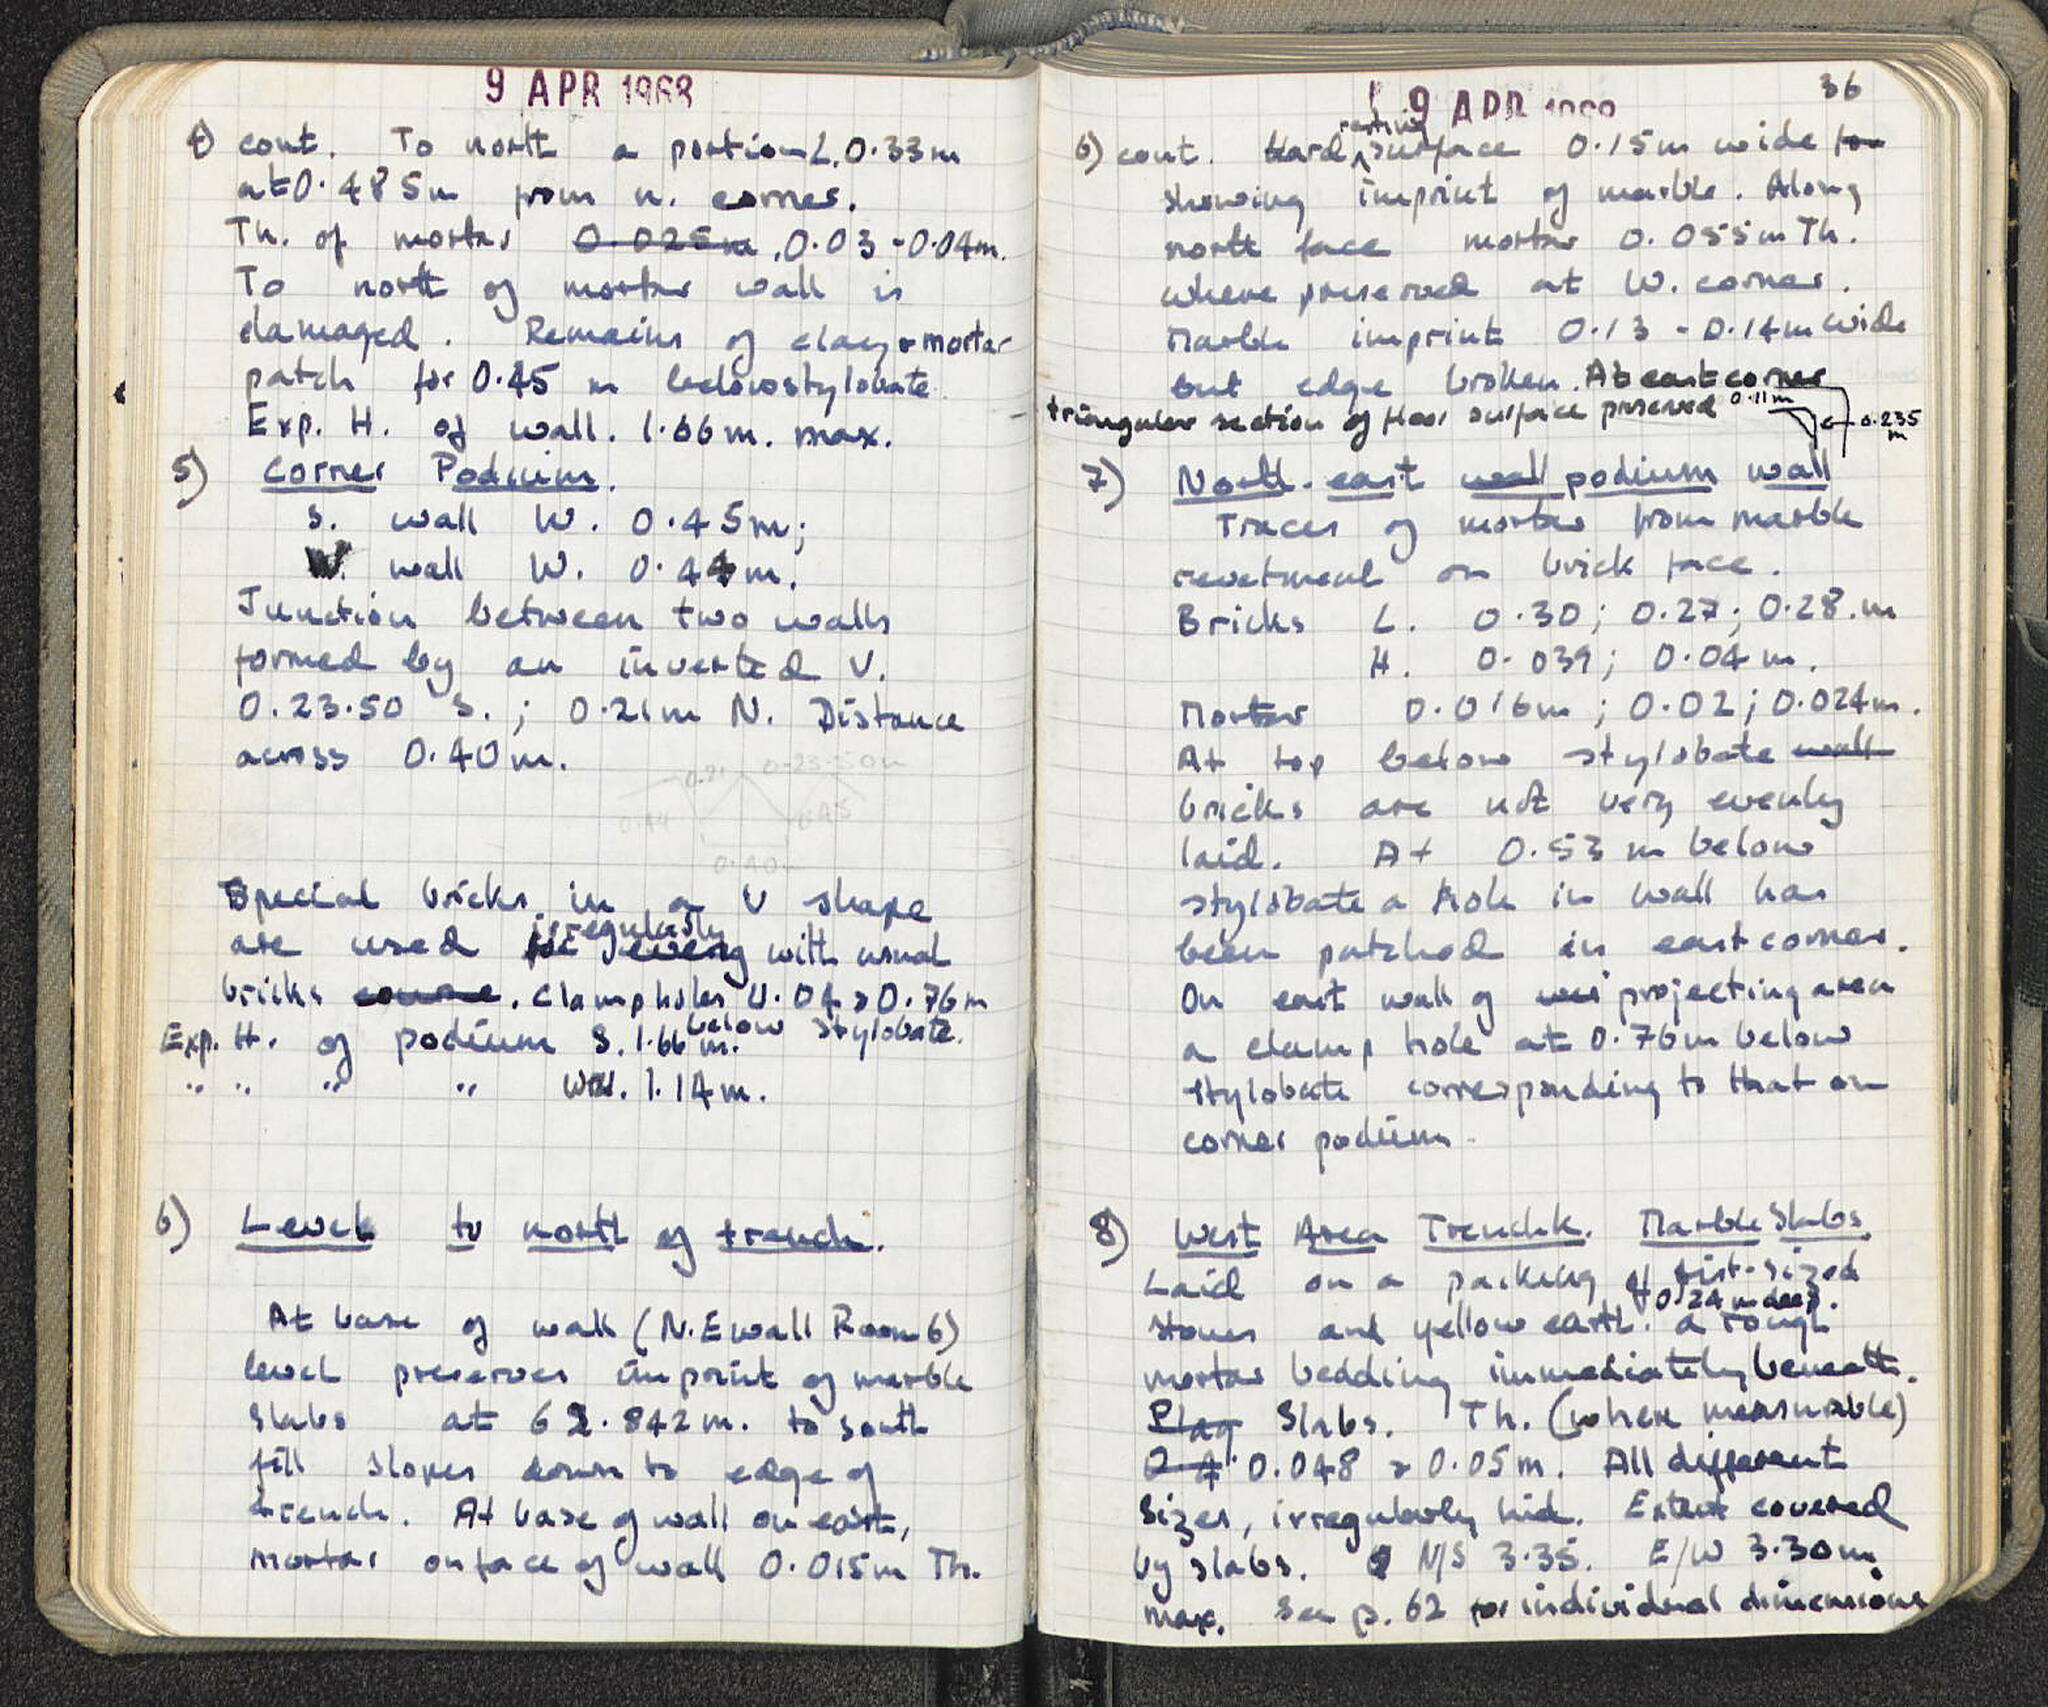 9 APR 1968
4) cont. To north a portion L. 0.33m
at 0.485m from n. corner.
Th. of mortar 0.025m, 0.03-0.04m.
To north of mortar wall is
damaged. Remains of clay & mortar
patch for 0.45 m below stylobate
Exp. H. of wall. 1.66m. max.
5) Corner Podium.
S. wall W. 0.45m;
W. wall W. 0.44m.
Junction between two walls
formed by an inverted V.
0.23.50 S.; 0.21m N. Distance
across 0.40m.
0.21 0.23.50m
0.44 0.45
0.40m
Special bricks in a V shape
are used irregularly with usual
bricks course. Clamp holes 0.04 > 0.76m
below stylobate.
Exp. H. of podium S. 1.66m.
" " " " W. 1.14m.
6) Level to north of trench.
At base of wall (N.E wall Room 6)
level preserves imprint of marble
slabs at 62.842m. to south
fill slopes down to edge of
trench. At base of wall on east,
mortar on face of wall 0.015m Th.
9 APR 1968
36
6) cont. Hard resting surface 0.15m wide for
showing imprint of marble. Along
north face mortar 0.055m Th.
where preserved at W. corner.
Marble imprint 0.13 - 0.14m wide
but edge broken. At east corner
triangular section of floor surface preserved 0.11m 0.235
m
7) North-east wall podium wall
Traces of mortar from marble
revetment on brick face.
Bricks L. 0.30; 0.27; 0.28.m
H. 0.039; 0.04m.
Mortar 0.016m; 0.02; 0.024m.
At top below stylobate wall
bricks are not very evenly
laid. At 0.53 m below
stylobate a hole in wall has
been patched in east corner.
On east wall of projecting area
a clamp hole at 0.76m below
stylobate corresponding to that on
corner podium.
8) West Area Trench K. Marble Slabs.
Laid on a packing of fist-sized
stones and yellow earth. 0.24 m deep. a rough
mortar bedding immediately beneath.
Flag Slabs. Th. (where measurable)
0.4 0.048 > 0.05m. All different
sizes, irregularly laid. Extent covered
by slabs. N/S 3.35. E/W 3.30m
max. See p. 62 for individual dimensions